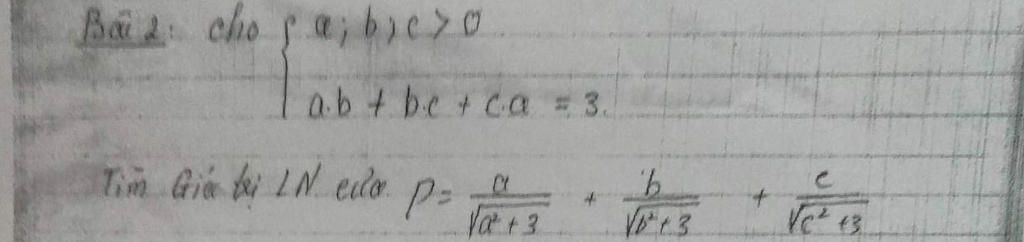 Bài 2: cho { a; b; c > 0
a.b + b.c + c.a = 3.
Tìm Giá trị LN của P = a/√(a²+3) + b/√(b²+3) + c/√(c²+3)